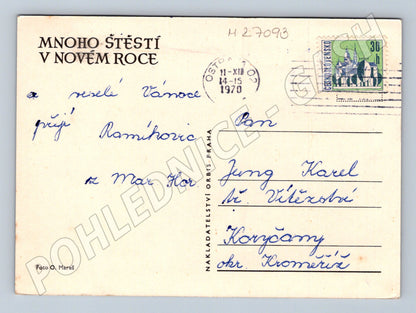 M 27093
MNOHO ŠTĚSTÍ
V NOVÉM ROCE
11-XII
14-15
1970
ČESKOSLOVENSKO
30
a veselé Vánoce
přejí
z Mar Hor
Pan
Jung Karel
tř. Vítězství
Koryčany
okr. Kroměříž
Foto O. Mareš
NAKLADATELSTVÍ ORBIS PRAHA
POHLEDNICE